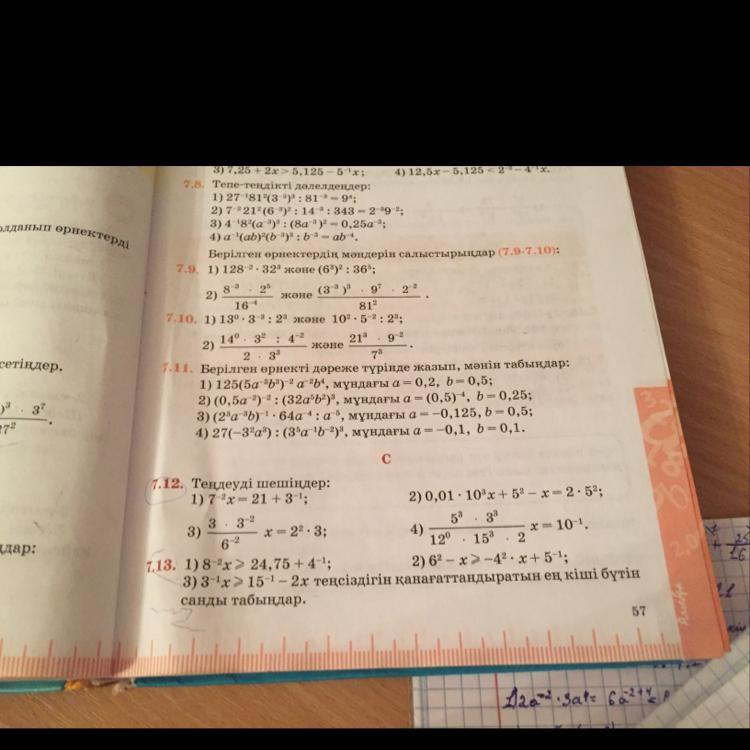 3) 7,25 + 2x > 5,125 – 5⁻¹x; 4) 12,5x – 5,125 < 2⁻³ – 4⁻¹x.
7.8. Тепе-теңдікті дәлелдеңдер:
1) 27⁻¹81²(3⁻²)³ : 81⁻³ = 9⁴;
2) 7⁻²21²(6⁻³)² : 14⁻³ : 343 = 2⁻³9⁻²;
3) 4⁻¹8²(a⁻³)³ : (8a⁻³)² = 0,25a⁻³;
4) a⁻¹(ab)²(b⁻³)³ : b⁻³ = ab⁻⁴.
Берілген өрнектердің мәндерін салыстырыңдар (7.9-7.10):
7.9. 1) 128⁻² · 32³ және (6³)² : 36⁵;
2) 8⁻³ · 2⁵ / 16⁻⁴ және (3⁻³)³ · 9⁷ · 2⁻² / 81² .
7.10. 1) 13⁰ · 3⁻³ : 2³ және 10² · 5⁻² : 2³;
2) 14⁰ · 3² : 4⁻² / 2 · 3³ және 21³ · 9⁻² / 7³ .
7.11. Берілген өрнекті дәреже түрінде жазып, мәнін табыңдар:
1) 125(5a⁻³b³)⁻² a⁻²b⁴, мұндағы a = 0,2, b = 0,5;
2) (0,5a⁻²)⁻² : (32a⁵b²)³, мұндағы a = (0,5)⁻⁴, b = 0,25;
3) (2³a⁻³b)⁻¹ · 64a⁻⁴ : a⁻⁵, мұндағы a = –0,125, b = 0,5;
4) 27(–3²a³) : (3⁵a⁻¹b⁻²)³, мұндағы a = –0,1, b = 0,1.
C
7.12. Теңдеуді шешіңдер:
1) 7⁻²x = 21 + 3⁻¹; 2) 0,01 · 10³x + 5² – x = 2 · 5²;
3) 3 · 3⁻² / 6⁻² x = 2² · 3; 4) 5³ · 3³ / 12⁰ · 15³ · 2 x = 10⁻¹.
7.13. 1) 8⁻²x ⩾ 24,75 + 4⁻¹; 2) 6² – x ⩾ –4² · x + 5⁻¹;
3) 3⁻¹x ⩾ 15⁻¹ – 2x теңсіздігін қанағаттандыратын ең кіші бүтін
санды табыңдар.
57
Алгебра
олданып өрнектерді
сетіңдер.
)³ · 3⁷
27² .
дар:
2a⁻² · 3a⁴ = 6a⁻²⁺⁴ =